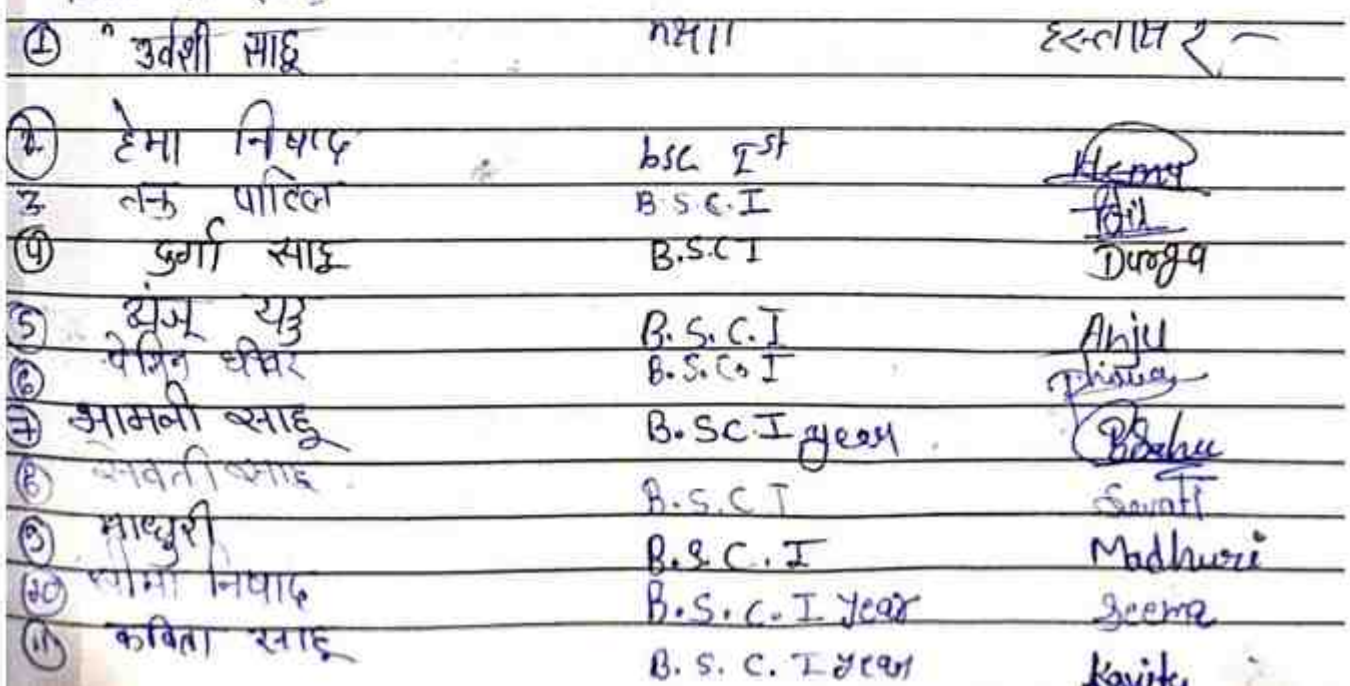 ① उर्वशी साहू कक्षा हस्ताक्षर -
2 हेमा निषाद bsc Ist Hema
3 तनु पाटिल B.S.C.I
④ दुर्गा साहू B.S.C I Durga
⑤ अंजू यदु B.S.C.I Anju
⑥ धीवर B.S.C. I
⑦ भामनी साहू B.SC.I year BSahu
⑧ सेवती साहू B.S.C I Sevati
⑨ माधुरी B.S.C.I Madhuri
⑩ सीमा निषाद B.S.C.I year Seema
⑪ कविता साहू B.S.C. I year Kavita